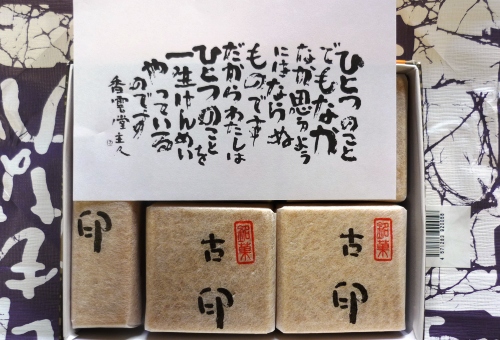 ひとつのこと
でもなか
なか思うよう
にはならぬ
ものです
だからわたしは
ひとつのことを
一生けんめい
やっている
のです
香雲堂主人
銘菓
古印
銘菓
古印
印